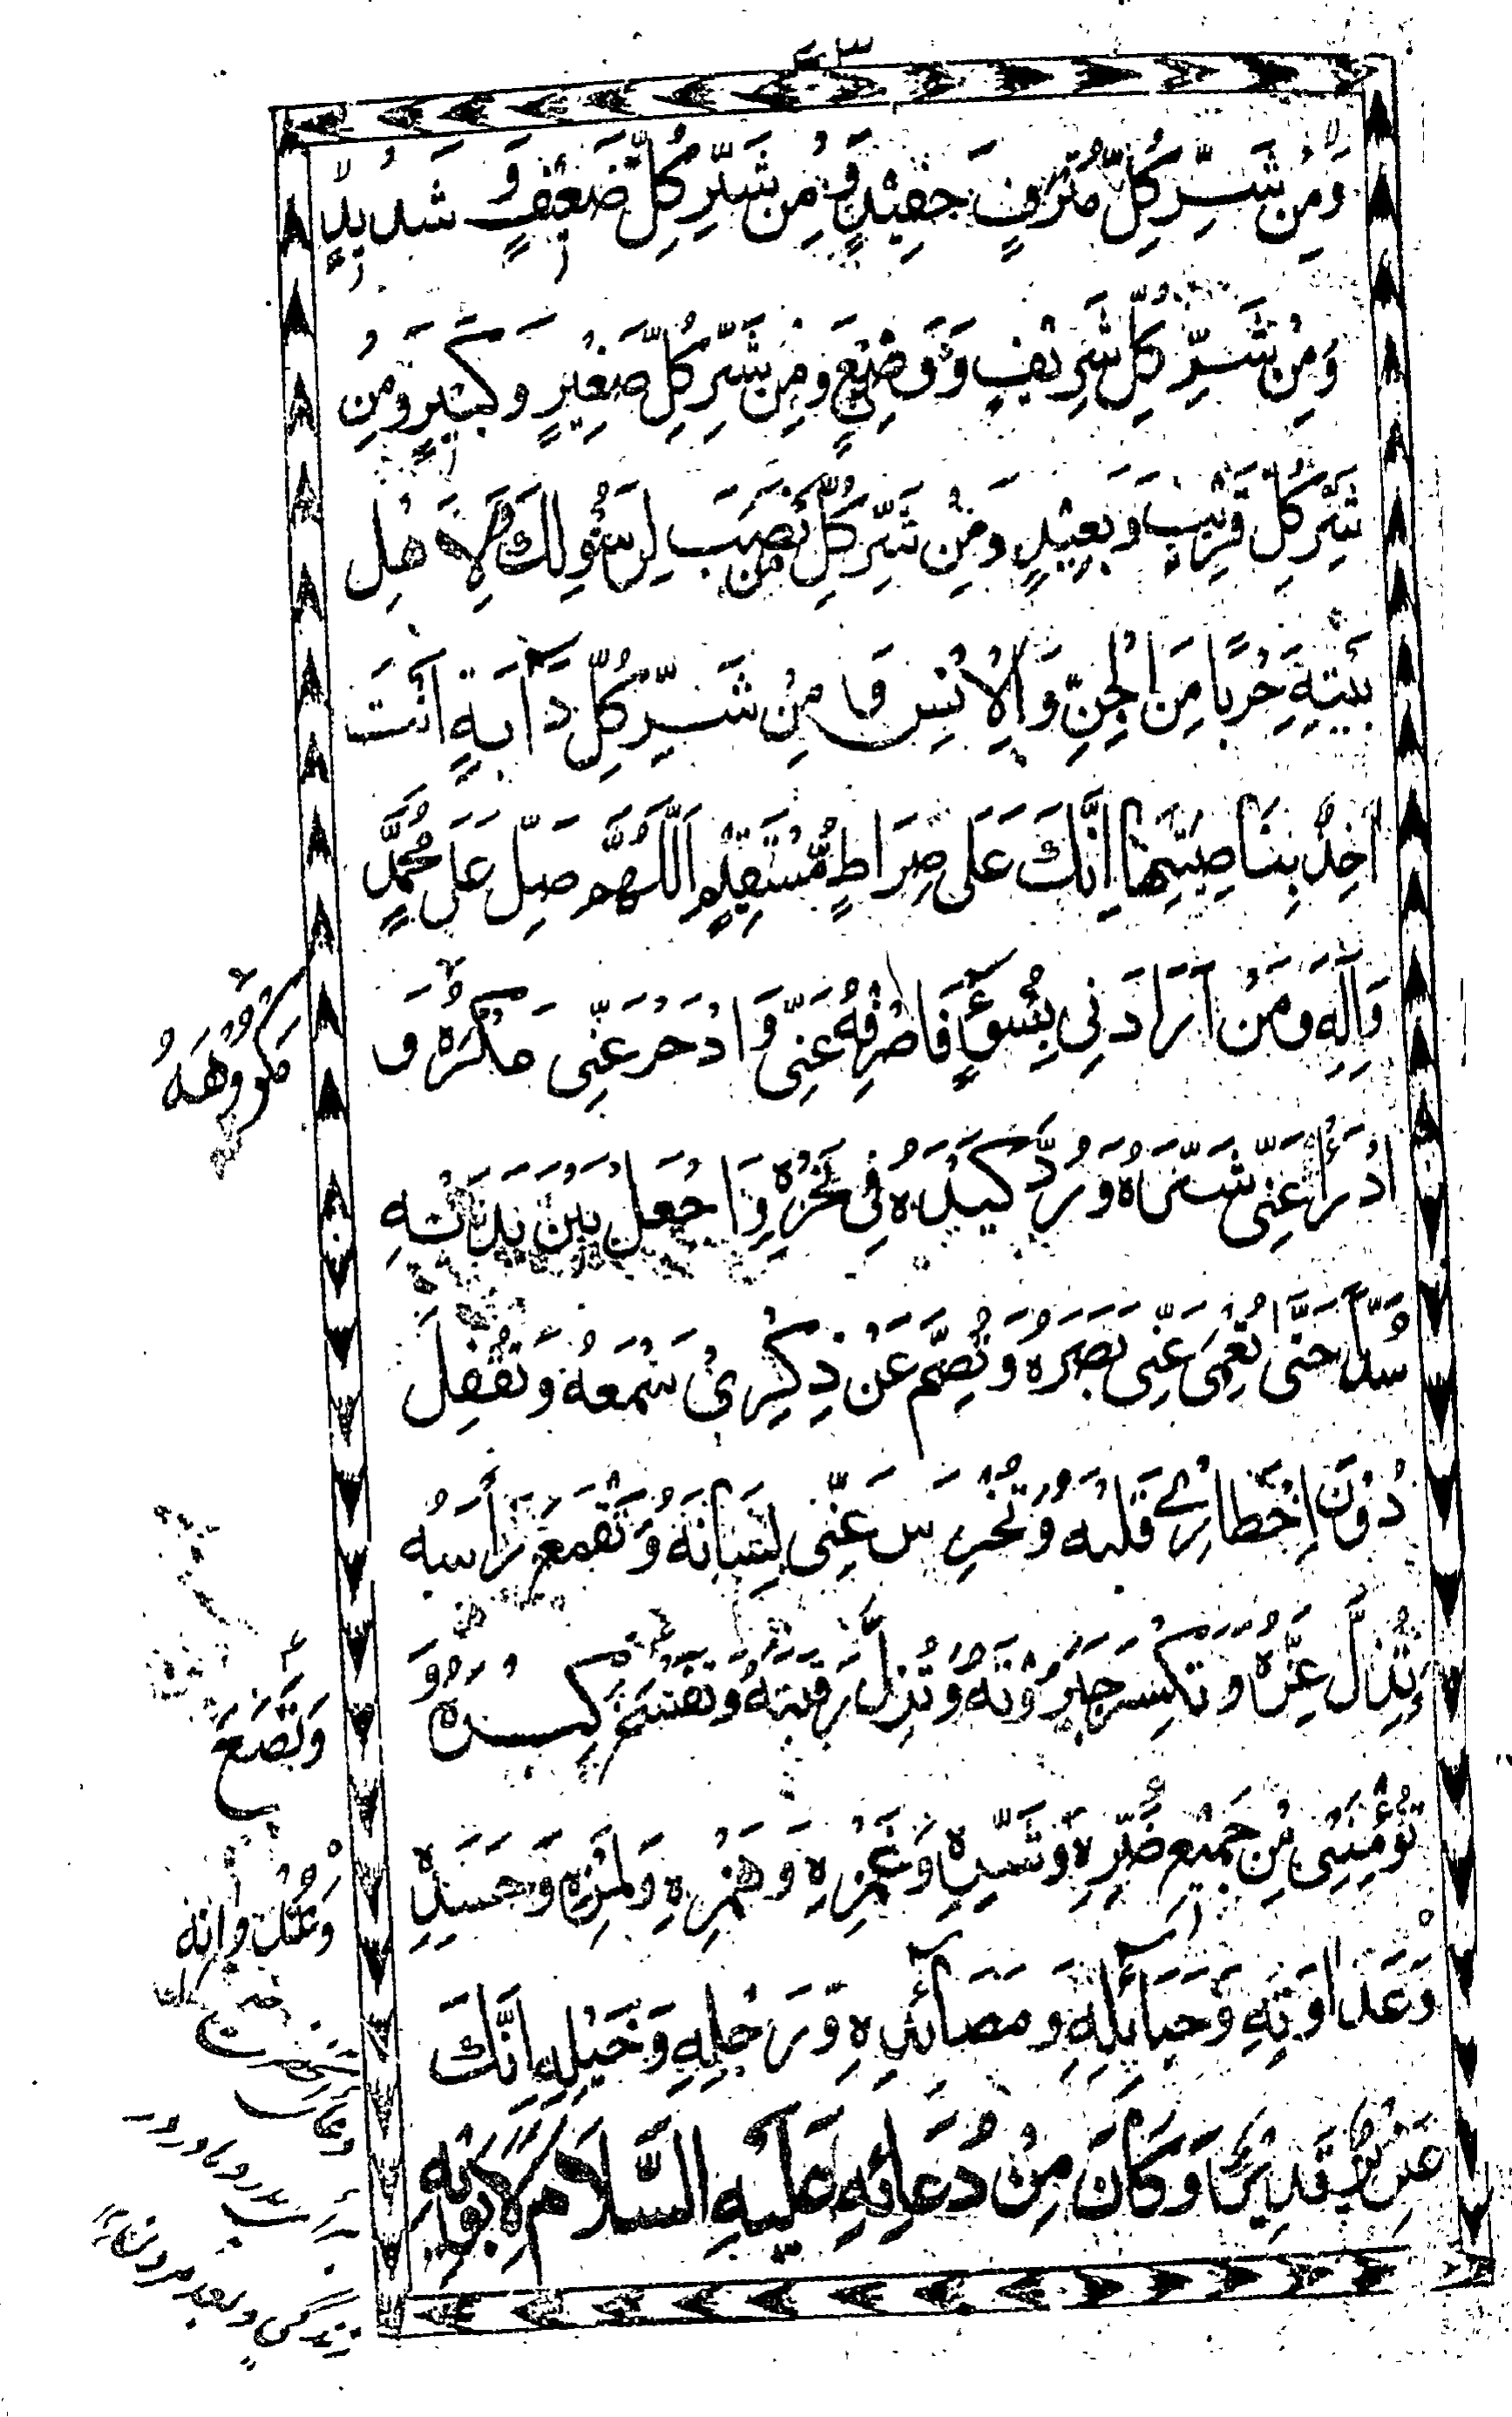 وَمِنْ شَرِّ كُلِّ مُتْرَفٍ حَفِيْدٍ وَّمِنْ شَرِّ كُلِّ ضَعِيْفٍ وَّ شَدِيْدٍ
وَمِنْ شَرِّ كُلِّ شَرِيْفٍ وَّوَضِيْعٍ وَمِنْ شَرِّ كُلِّ صَغِيْرٍ وَكَبِيْرٍ وَمِنْ
شَرِّ كُلِّ قَرِيْبٍ وَبَعِيْدٍ وَمِنْ شَرِّ كُلِّ مَنْ نَصَبَ لِرَسُوْلِكَ وَلِاَهْلِ
بَيْتِهٖ حَرْبًا مِنَ الْجِنِّ وَالْاِنْسِ وَ مِنْ شَرِّ كُلِّ دَآبَةٍ اَنْتَ
اٰخِذٌ بِنَاصِيَتِهَا اِنَّكَ عَلٰى صِرَاطٍ مُّسْتَقِيْمٍ اَللّٰهُمَّ صَلِّ عَلٰى مُحَمَّدٍ
وَاٰلِهٖ وَمَنْ اَرَادَنِى بِسُوْٓءٍ فَاصْرِفْهُ عَنِّى وَادْحَرْ عَنِّى مَكْرَهٗ وَ
مَكْرُوْهَهٗ
ادْرَأْ عَنِّى شَرَّهٗ وَرُدَّ كَيْدَهٗ فِى نَحْرِهٖ وَاجْعَلْ بَيْنَ يَدَيْهِ
سُدًّا حَتّٰى تُعْمِىَ عَنِّى بَصَرَهٗ وَتُصِمَّ عَنْ ذِكْرِىْ سَمْعَهٗ وَتُقْفِلَ
دُوْنَ اِخْطَارِىْ قَلْبَهٗ وَتُخْرِسَ عَنِّى لِسَانَهٗ وَتَقْمَعَ رَأْسَهٗ
وَتُذِلَّ عِزَّهٗ وَتَكْسِرَ جَبَرُوْتَهٗ وَتُذِلَّ رَقَبَتَهٗ وَتَفْسَخَ كِبْرَهٗ وَ
تُؤْمِنَنِى مِنْ جَمِيْعِ ضَرِّهٖ وَشَرِّهٖ وَغَمْزِهٖ وَهَمْزِهٖ وَلَمْزِهٖ وَحَسَدِهٖ
وَعَدَاوَتِهٖ وَحَبَآئِلِهٖ وَمَصَآئِدِهٖ وَرَجْلِهٖ وَخَيْلِهٖ اِنَّكَ
عَزِيْزٌ قَدِيْرٌ وَكَانَ مِنْ دُعَائِهٖ عَلَيْهِ السَّلَامُ لِاَبَوَيْهِ
زندگی و بعد مردن